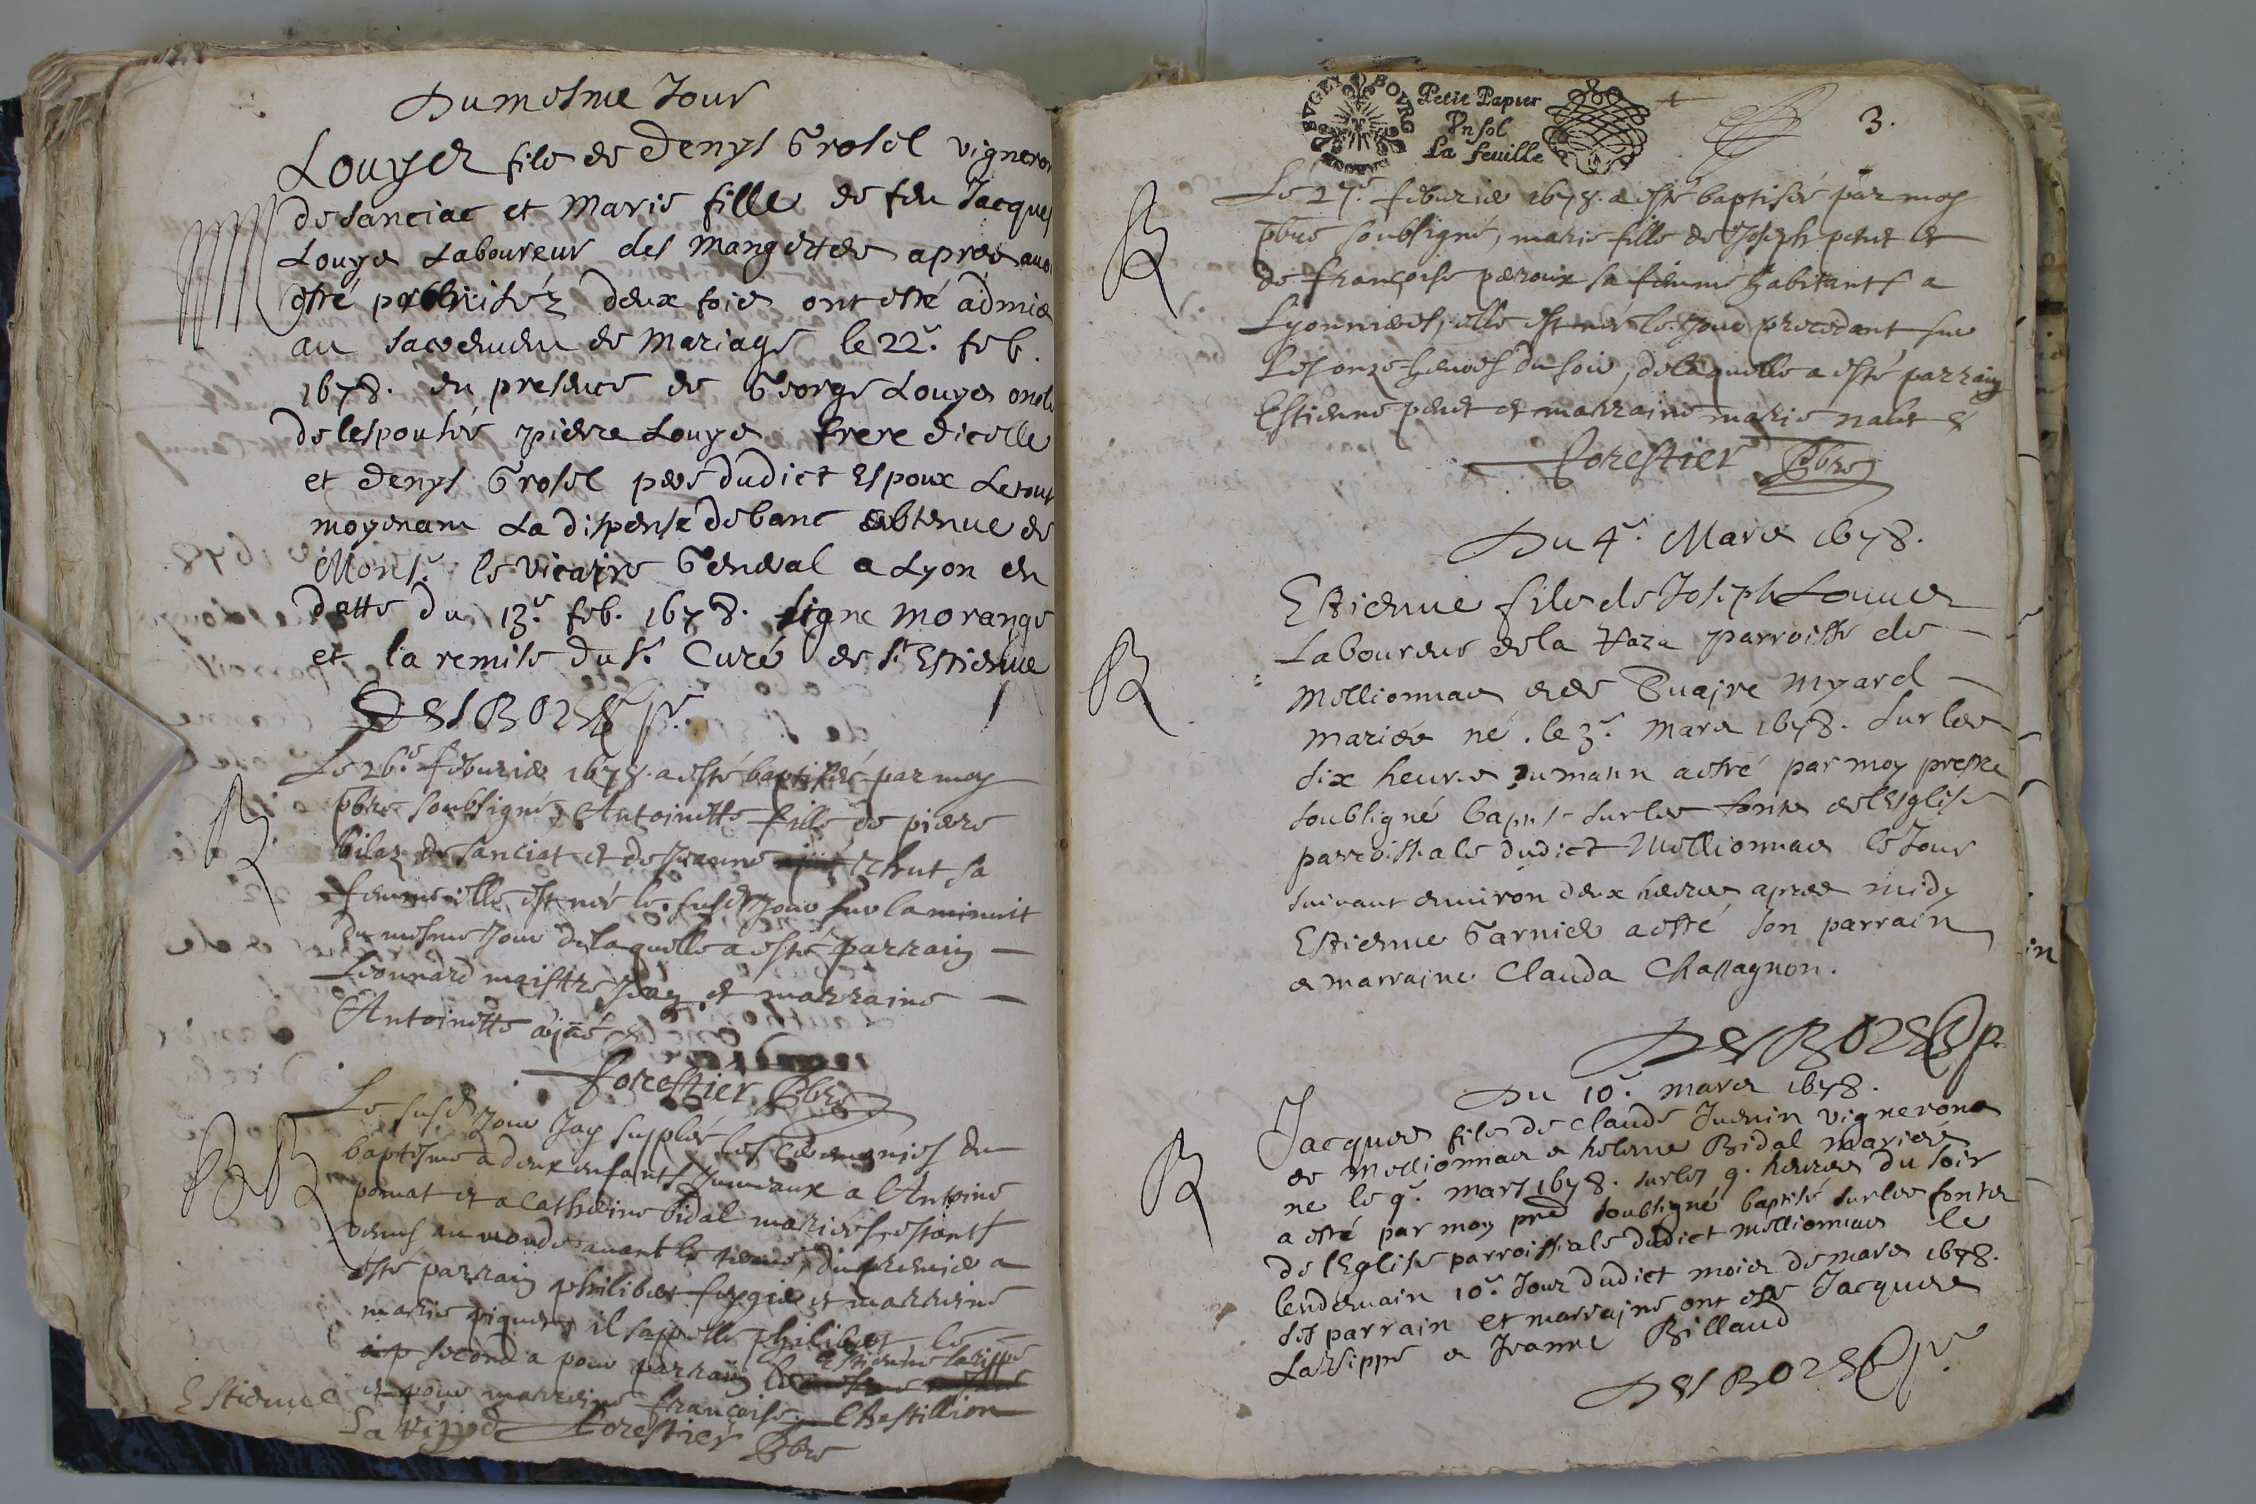 Du mesme Jour
Louys fils de Denys Grosel vigneron
de Sanciac et Marie fille de feu Jacques
Louys Laboureur des Mangettes apres avoir
estré publiséz deux fois ont esté admis
au sacrement de Mariage le 22e. feb.
1678. en presence de George Louys oncle
de lespousée pierre Louys frere dicelle
et Denys Grosel pere dudict Espoux Le tout
moyenant La dispense de banc obtenue de
Monsr. le vicaire General a Lyon en
datte du 13e. feb. 1678. signe morange
et la remise du Sr. Curé de St Estienne
Le 26e febvrier 1678. a esté baptisée par moy
pbre soubsigné, Anthoinette fille de pierre
bilaz de Sanciat et de Jeanne Tchut sa
femme elle est née le susd Jour sur la minuit
du mesme Jour de laquelle a esté parrain
Leonnard maistre Jean et marraine
Anthoinette
forestier Pbre
BB
Le susd Jour Jay supplée les Ceremonies du
baptesme a deux enfants Jumeaux a Anthoine
pomat et a Catherine bidal mariés estants
venus au monde avant le terme, du premier a
esté parrain philibert et marraine
marie il sappelle philibert le
second a pour parrain Estienne Larippe
et pour marraine françoise Chastillion
Estienne
La rippe forestier Pbre
BOVRG BVGEY
Petit Papier
Vn sol
La feuille
3.
B
Le 27e. febvrier 1678. a esté baptisée par moy
pbre soubsigné, marie fille de Joseph petit et
de françoise peroux sa femme habitants a
Lyonnieres, elle est née le Jour precedant sur
Les onze heures du soir, de laquelle a esté parrain
Estienne petit et marraine marie nalet
forestier Pbre
Du 4e. Mars 1678.
B
Estienne fils de Joseph Louuet
Laboureur de la Vaza parroisse de
Mellionnas et de Myard
mariés né le 3e. Mars 1678. sur les
six heures du matin a estré par moy prestre
soubsigné bapt. sur les fonts de lEsglise
parroissiale dudict Mellionnas le Jour
suivant environ deux heures apres midy
Estienne Garnier a esté son parrain
et marraine Clauda Chassagnon.
Du 10e. mars 1678.
B
Jacques fils de Claude Juenin vigneron
de Mellionnas et helene Bidal mariés
ne le 9e. mars 1678. sur les 9. heures du soir
a esté par moy pre soubsigné baptisé sur les fonts
de lEglise parroissiale dudict mellionnas le
lendemain 10e. Jour dudict mois de mars 1678.
ses parrain et marraine ont esté Jacques
Larippe et Jeanne Billaud